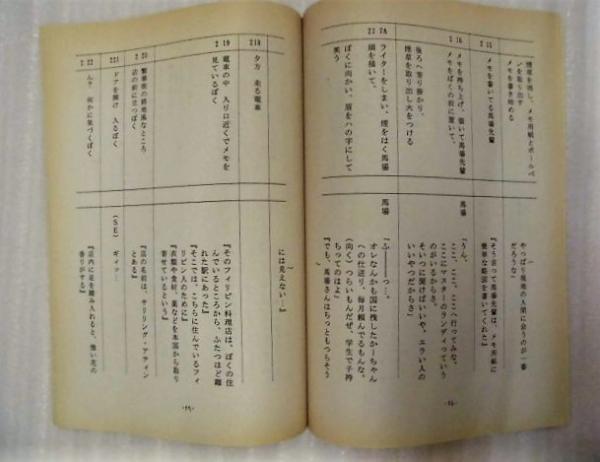 煙草を消し、メモ用紙とボールペ
ンを取り出す
メモを書き始める
やっぱり現地の人間に会うのが一番
だろうな」
215
メモを書いてる馬場先輩
『そう言って馬場先輩は、メモ用紙に
簡単な略図を書いてくれた』
216
メモを持ち上げ、書いて馬場先輩
メモをぼくの前に置いて、
後ろへ寄り掛かり、
煙草を取り出し火をつける
馬場
「うん、
ここ、ここ、ここへ行ってみな。
ここにマスターのランディっていう
のがいるからさ、
そいつに聞けばいいや、エラい人の
いいやつだからさ」
217A
ライターをしまい、煙をはく馬場
頭を掻いて、
ぼくに向かい、眉をハの字にして
笑う
馬場
「ふーーーっ…、
オレなんかも国に残したかーちゃん
への仕送り、毎月頼んでるもんな、
(向く)つらいもんだぜ、学生で子持
ちってのはよ」
『でも、馬場さんはちっともつらそう
には見えない…』
218
夕方 走る電車
219
電車の中 入り口近くでメモを
見ているぼく
『そのフィリピン料理店は、ぼくの住
んでいるところから、ふたつほど離
れた駅にあった』
『そこでは、こちらに住んでいるフィ
リピン人のために』
『衣類や食材、薬などを本国から取り
寄せているという』
220
繁華街の路地風なところ
店の前に立つぼく
『店の名前は、サリリング・アティン
とある』
221
ドアを開け 入るぼく
(SE) ギィッ…
222
ん? 何かに気づくぼく
『店内に足を踏み入れると、強い花の
香りがする』